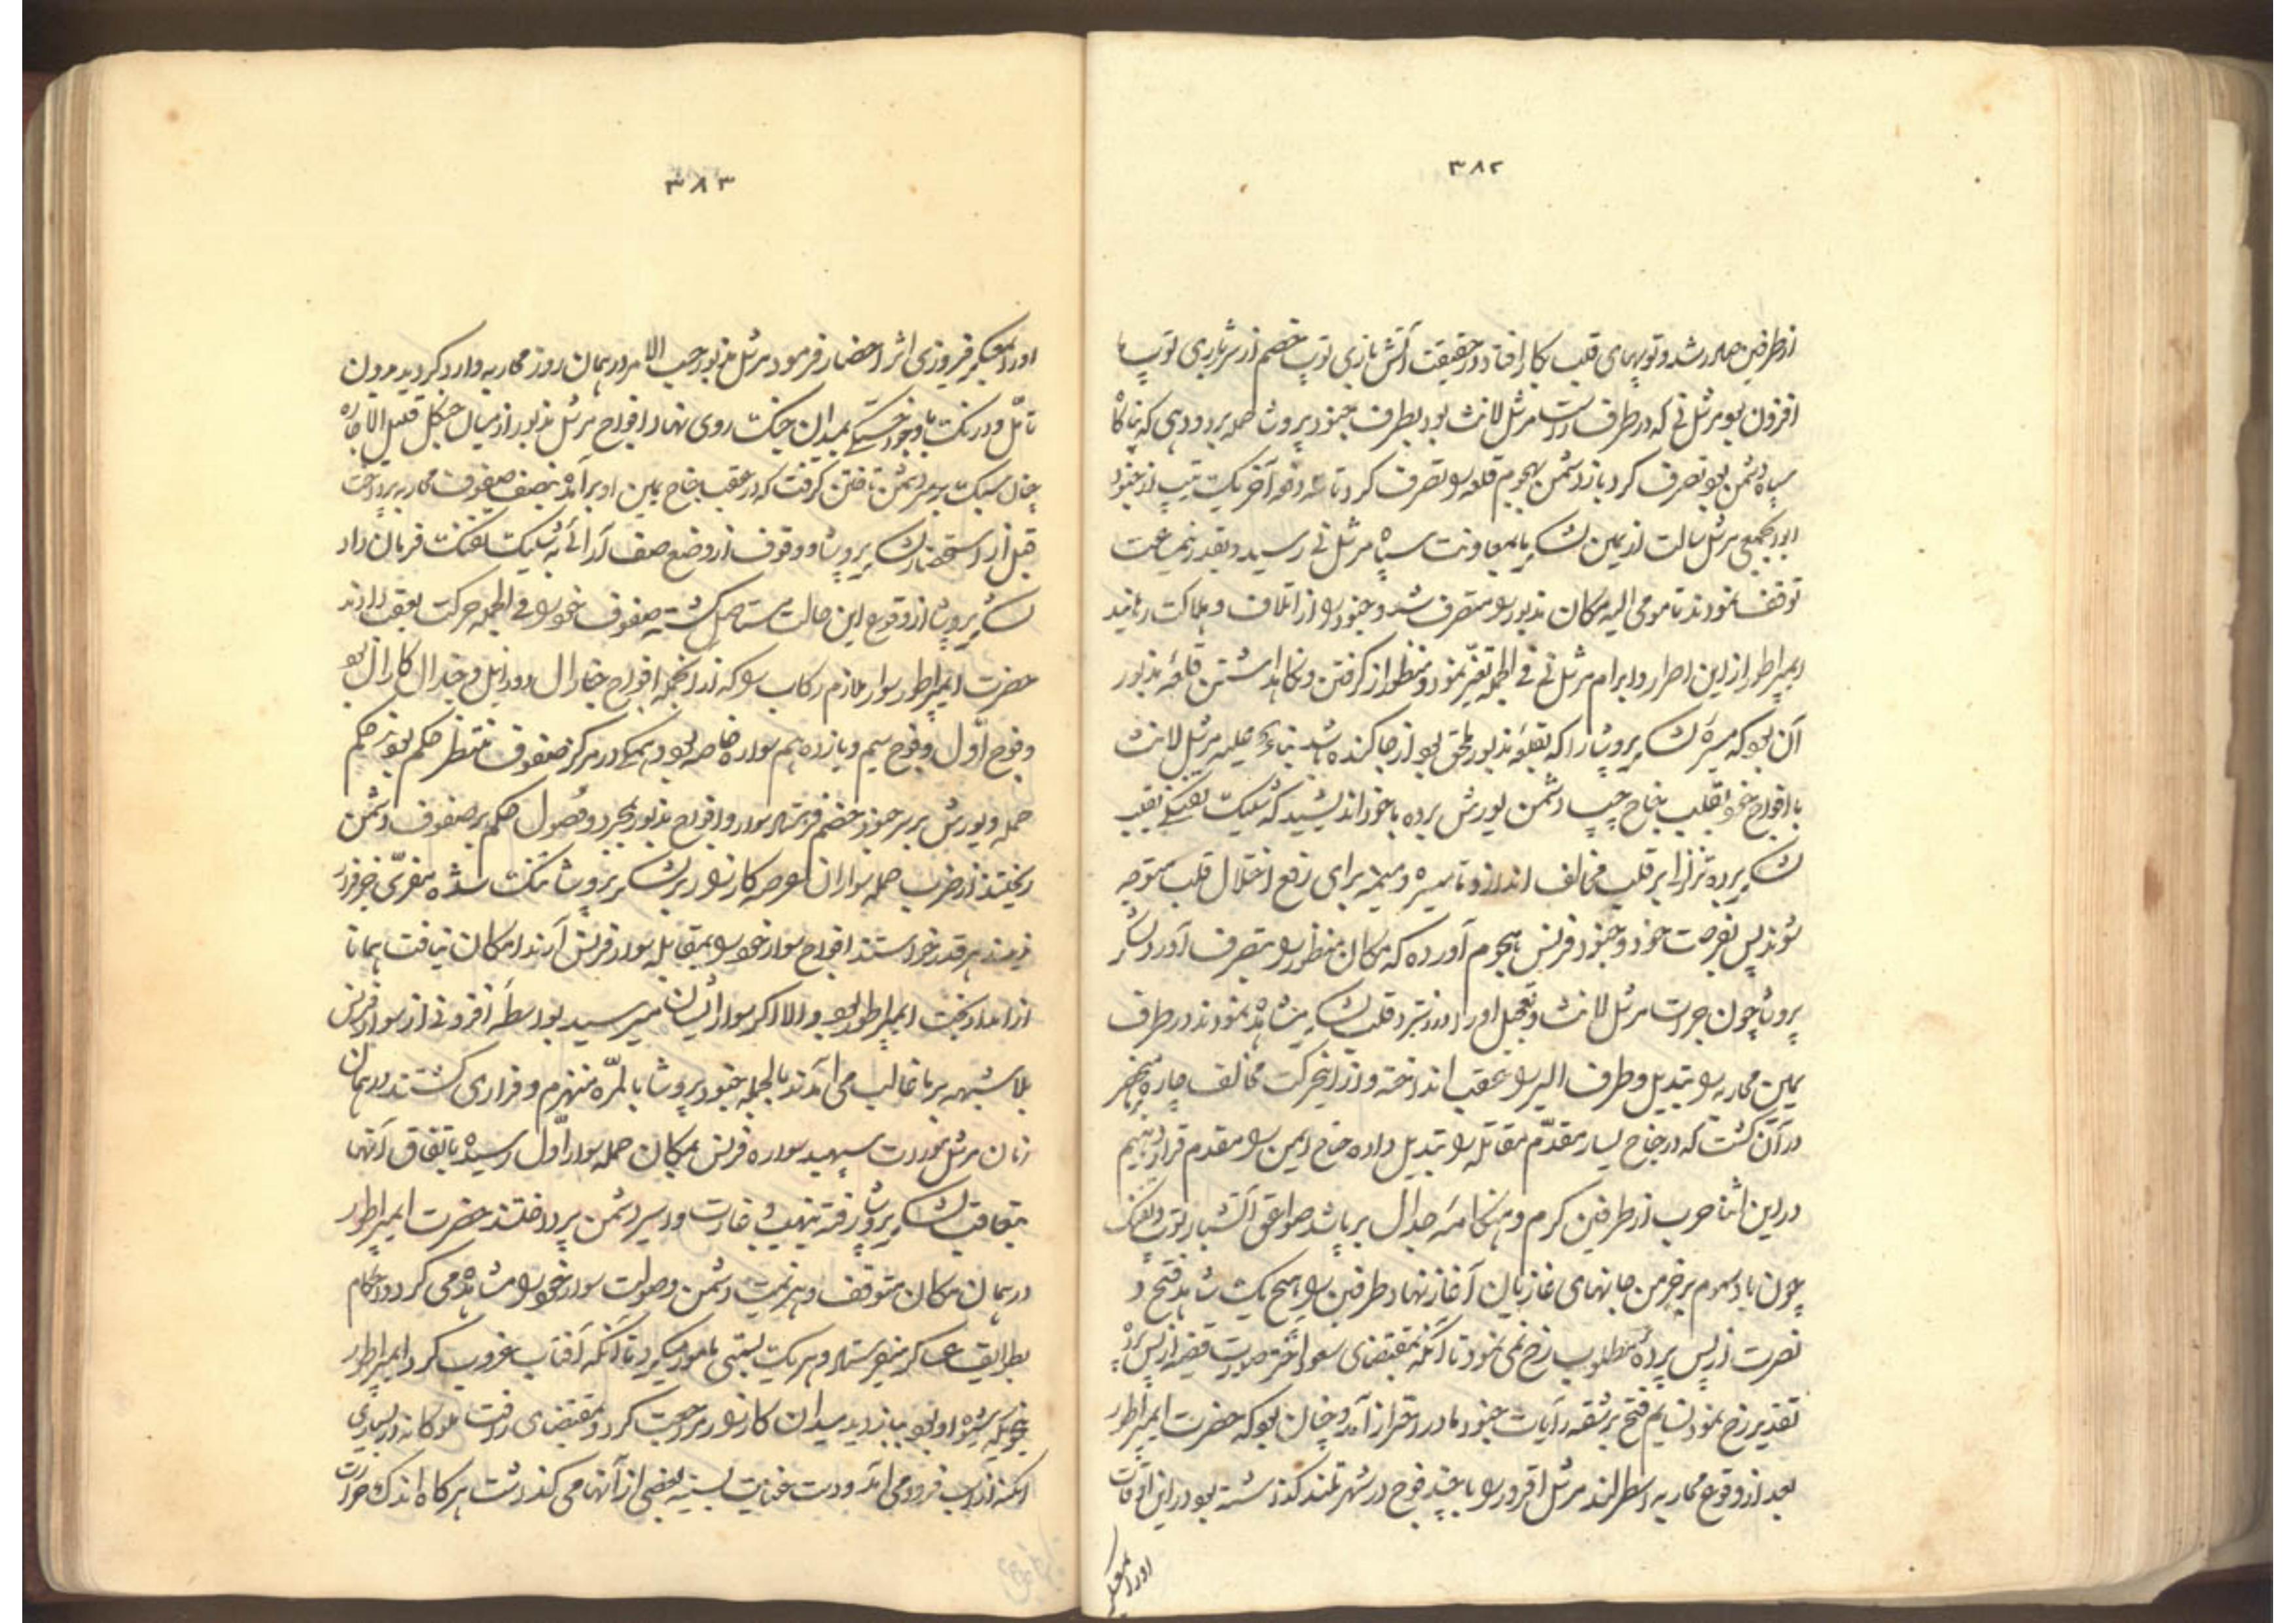 ۳۸۲
از طرفین صادر شد و توپهای قلب بکار افتاد در حقیقت آتش بازی توپ خصم از شرباری توپ ما
افزون بود مرشل نی که در طرف راست مرشل لانث بود بطرف جنود پروشا حمله برد و دهی که پناه گاه
سپاه دشمن بود تصرف کرد باز دشمن بهجوم قلعه را تصرف کرد تا سه دفعه آخر یک تیپ از جنود
ابوابجمعی مرشل سالت از یمین لشکر ما بمعاونت سپاه مرشل نی رسید و بقدر نیم ساعت
توقف نمودند تا مومی الیه مکان مذبور را متصرف شد و جنود را از اتلاف و هلاکت رهانید
ایمپراطور از این اصرار و ابرام مرشل نی فی الجمله تغیّر نمود و منظور از گرفتن و نگاهداشتن قلعهٔ مذبور
آن بود که میسرهٔ لشکر پروشا را که بقلعهٔ مذبور ملحق بود از جا کنده باشد بناءً علیه مرشل لانث
با افواج خود بقلب بجناح چپ دشمن یورش برده با خود اندیشید که شلیک تفنگی بقلب
لشکر برده تزلزل بر قلب مخالف اندازد تا میسره و میمنه برای رفع اختلال قلب متوجه
شوند پس بفرصت خود و جنود فرنس هجوم آورده که مکان منظور را بتصرف آورد لشکر
پروشا چون جرات مرشل لانث و تعجیل او را در نبرد قلب لشکر مشاهده نمودند در طرف
یمین محاربه را تبدیل و طرف الیسر را بعقب انداخته و از این حرکت مخالف چاره منحصر
در آن گشت که در جناح یسار مقدّم مقاتله را تبدیل داده جناح ایمن را مقدم قرار دهیم
در این اثنا حرب از طرفین گرم و هنگامهٔ جدال برپا شد صواعق آتشبار توپ و تفنگ
چون باد سموم بر خرمن جانهای غازیان آغاز نهاد و طرفین را هیچ یک شاهد فتح و
نصرت از پس پردهٔ مطلوب رخ نمی نمود تا آنکه بمقتضای سعد اختر صورت قضیه از پس پردهٔ
تقدیر رخ نمود نسایم فتح بر شقه رایات جنود ما در اهتزاز آمد و چنان بود که حضرت ایمپراطور
بعد از وقوع محاربه اسطرلند مرشل اقرور را با چند فوج در شهر تمند گذاشته بود در این اوقات
اورا بمعسکر
۳۸۳
اورا بمعسکر فیروزی اثر احضار فرمود مرشل مذبور حسب الامر در همان روز محاربه وارد گردید بدون
تامّل و درنگ با وجود خستگی بمیدان جنگ روی نهاد افواج مرشل مذبور از میان جنگل قلیل الاشجار
چنان سبک بر سر دشمن تاختن گرفت که در عقب جناح یمین او برآمده بنصف صفوف محاربه پرداخت
قبل از استحضار لشکر پروشا و وقوف از وضع صف آرائی به شلیک تفنک فرمان داد
لشکر پروشا از وقوع این حالت مستاصل گشته صفوف خود را فی الجمله حرکت بعقب دادند
حضرت ایمپراطور سوار ملازم رکاب را که از آنجمله افواج جنارال دورانیل و جنرال کارال بود
و فوج اوّل و فوج سیم و یازدهم سواره خاصه بود و همگی در مرکز صفوف منتظر حکم بودند حکم
حمله و یورش بر سر جنود خصم فرستاد سوار و افواج مذبور بمجرد وصول حکم بر صفوف دشمن
ریختند از ضرب حمله سواران عرصه کارزار بر لشکر پروشا تنگ شده مفرّی جز فرار
ندیدند هر قدر خواستند افواج سوار خود را بمقابله سوار فرنس آرند امکان نیافت همانا
از امداد بخت ایمپراطور بود والا اگر سوار ایشان میرسید بواسطهٔ افزونی از سوار فرنس
بلا شبهه بر ما غالب می آمدند بالجمله جنود پروشا بالمرّه منهزم و فراری گشتند در همان
زمان مرشل مورات سپهبد سواره فرنس بمکان حمله سوار اوّل رسیده باتفاق آنها
بتعاقب لشکر پروشا رفته بنهب و غارت و اسیر دشمن پرداختند حضرت ایمپراطور
در همان مکان متوقف و هزیمت دشمن و صولت سوار خود را مشاهده می کرد و احکام
بطوایف عساکر میفرستاد و هر یک بسمتی مامور میکرد تا آنکه آفتاب غروب کرد ایمپراطور
چونکه شیوه او بود ببازدید میدان کارزار مراجعت کرد و بمقتضای رافت ملوکانه در بسیاری
امکنه از اسب فرود می آمد و دست عنایت بسینه بعضی از آنها می گذراشت هر گاه اندک حرارت